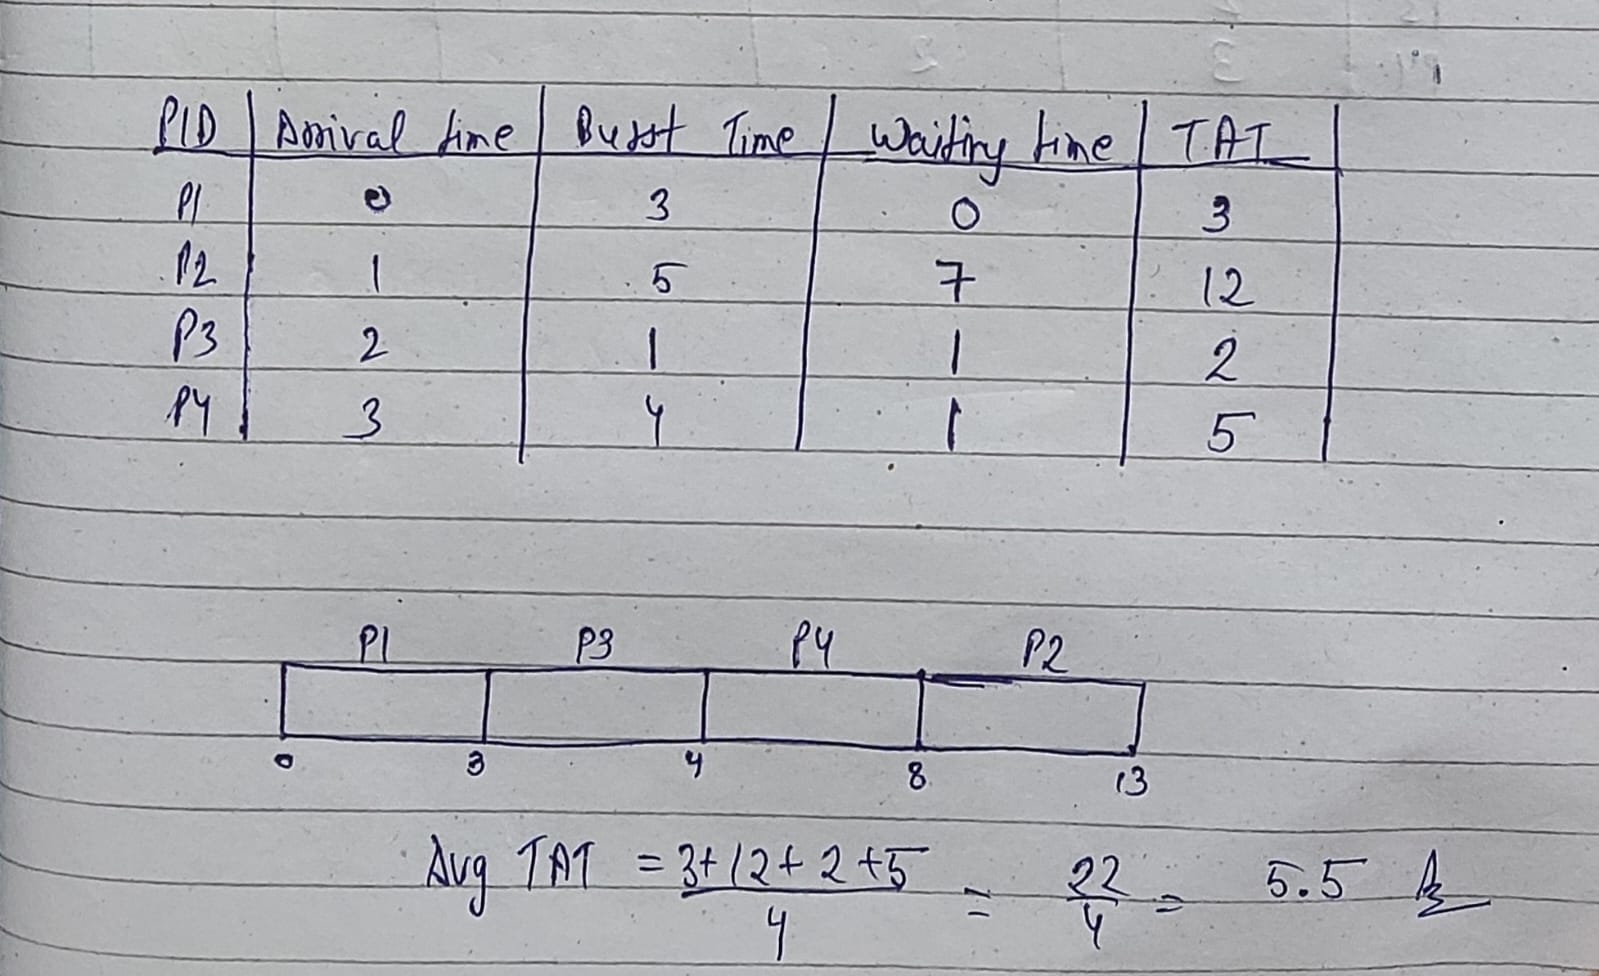 PID Arrival time Burst Time Waiting time TAT
P1 0 3 0 3
P2 1 5 7 12
P3 2 1 1 2
P4 3 4 1 5
P1 P3 P4 P2
0 3 4 8 13
Avg TAT = 3+12+2+5 / 4 = 22 / 4 = 5.5